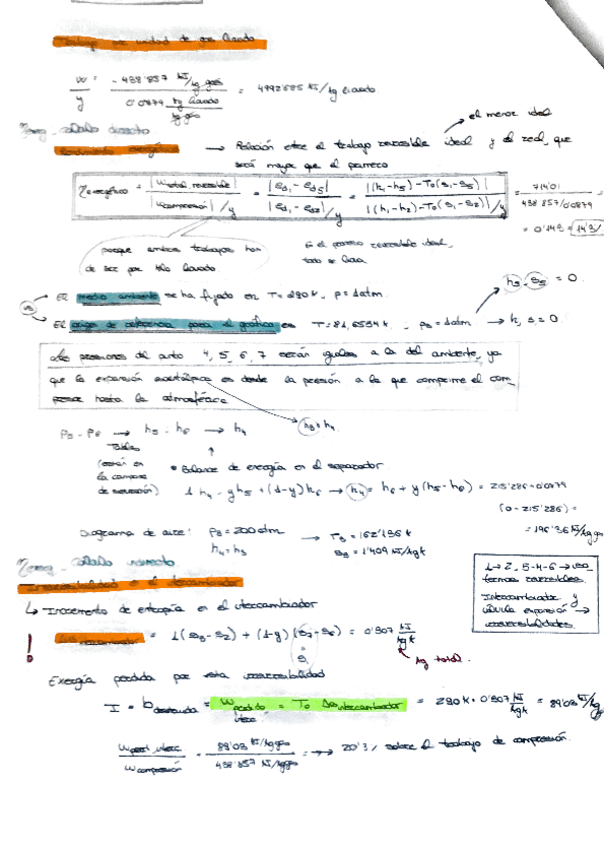 Trabajo por unidad de gas licuado
w/y = -438'857 kJ/kg gas / 0'0879 kg licuado/kg gas = 4992'685 kJ/kg licuado
cálculo directo
Rendimiento exergético → Relación entre el trabajo reversible ideal y el real, que
el menor ideal
será mayor que el primero
η exergético = |w total, reversible| / |w compresión|/y = |e_d1 - e_d5| / |e_d1 - e_d2|/y = |(h1-h5)-T0(s1-s5)| / |(h1-h2)-T0(s1-s2)|/y = 714'01 / 438'857/0'0879
= 0'149 = 14'9%
porque ambos trabajos han
de ser por kilo licuado.
Si el proceso reversible ideal,
todo se licua
h5, s5 = 0
El medio ambiente se ha fijado en T=290K, p=1atm.
El origen de referencia para el gráfico es T=81,6594K, p0=1atm → h, s=0.
Las presiones del punto 4, 5, 6, 7 serán iguales a la del ambiente, ya
que la expansión isentálpica es desde la presión a la que comprime el com-
presor hasta la atmosférica
h3=h4
p5=p6 → h5, h6 → h4
Tablas
(están en
la campana
de saturación)
• Balance de energía en el separador
1 h4 = y h5 + (1-y) h6 → h4 = h6 + y(h5-h6) = 215'286+0'0879
(0-215'286) =
= 196'36 kJ/kg gas
Diagrama de aire: p3=200atm
h4=h3
→ T3=162'196K
s3=1'409 kJ/kgK
cálculo indirecto
Irreversibilidad en el intercambiador
↳ Incremento de entropía en el intercambiador
1→2, 5-4-6 → uso
formas reversibles.
Intercambiador y
válvula expansión →
irreversibilidades.
! Δs intercambiador = 1(s3-s2) + (1-y)(s7-s6) = 0'307 kJ/kgK
s1
kg total.
Exergía perdida por esta irreversibilidad
I = b destruida = w perdido interc = T0 Δs intercambiador = 290K · 0'307 kJ/kgK = 89'03 kJ/kg
w perd, interc / w compresión = 89'03 kJ/kg gas / 438'857 kJ/kg gas = → 20'3% sobre el trabajo de compresión.